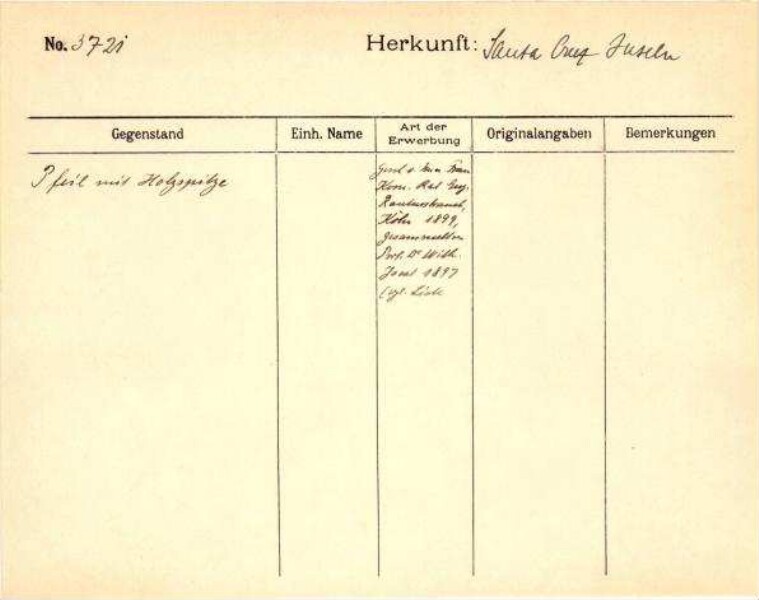 No. 3721
Herkunft: Santa Cruz Inseln
Gegenstand
Einh. Name
Art der
Erwerbung
Originalangaben
Bemerkungen
Pfeil mit Holzspitze
Gesch. v. Frau
Kom. Rat Eug.
Rautenstrauch,
Köln 1899,
gesammelt von
Prof. Dr Wilh.
Joest 1897
(vgl. Liste